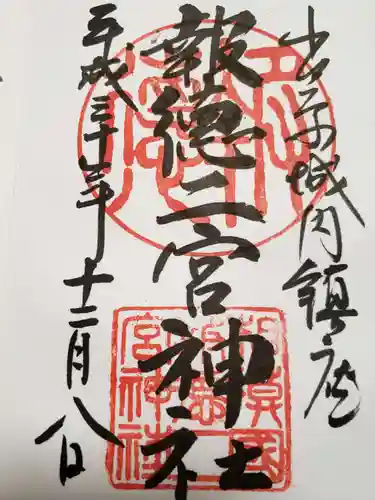 小田原城内鎮座
報徳二宮神社
平成三十年十二月八日